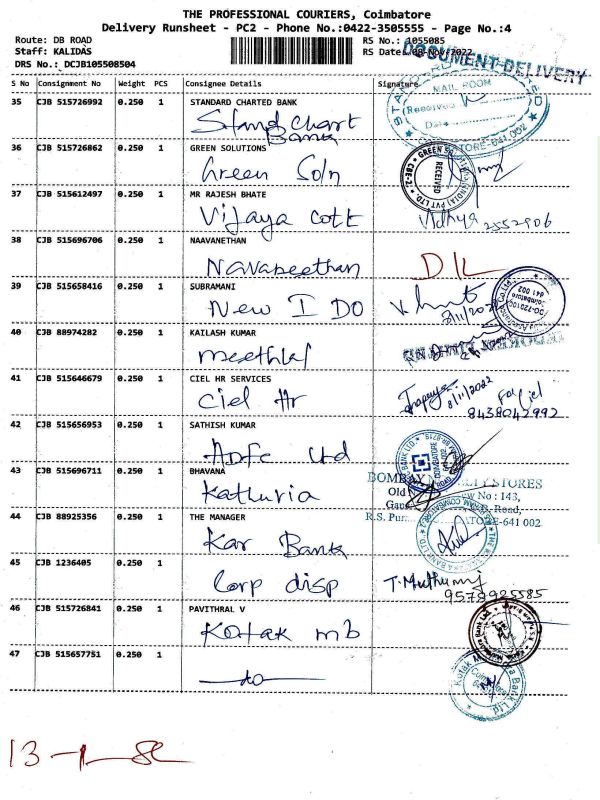 THE PROFESSIONAL COURIERS, Coimbatore
Delivery Runsheet - PC2 - Phone No.:0422-3505555 - Page No.:4
Route: DB ROAD
Staff: KALIDAS
DRS No.: DCJB105508504
RS No.: 1055085
RS Date: 08-Nov-2022
DOCUMENT DELIVERY
S No Consignment No Weight PCS Consignee Details Signature
35 CJB 515726992 0.250 1 STANDARD CHARTED BANK
Stand Chart
Bank
MAIL ROOM
Received
Date
36 CJB 515726862 0.250 1 GREEN SOLUTIONS
Green Soln
RECEIVED
37 CJB 515612497 0.250 1 MR RAJESH BHATE
Vijaya Cott Vidhya 2552906
38 CJB 515696706 0.250 1 NAAVANETHAN
Navaneethan D/L
39 CJB 515658416 0.250 1 SUBRAMANI
New I DO
40 CJB 88974282 0.250 1 KAILASH KUMAR
41 CJB 515646679 0.250 1 CIEL HR SERVICES
Ciel Hr 8/11/2022 For Ciel
8438042992
42 CJB 515656953 0.250 1 SATHISH KUMAR
HDFC Ltd
43 CJB 515696711 0.250 1 BHAVANA
Kathuria
BOMBAY STORES
Old New No : 143,
Road,
R.S. Pur 641 002
44 CJB 88925356 0.250 1 THE MANAGER
Kar Bank
45 CJB 1236405 0.250 1
Corp disp T. Muthumi
9578925585
46 CJB 515726841 0.250 1 PAVITHRAL V
Kotak mb
47 CJB 515657751 0.250 1
do
Kotak Bank Ltd